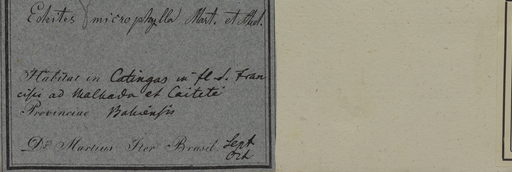 Echites microphylla Mart. et
Habitat in Catingas in fl. S. Fran
cisci ad Malhada et Caitete
Provinciae Bahiensis
Dr. Martius Iter Brasil. Sept
Oct